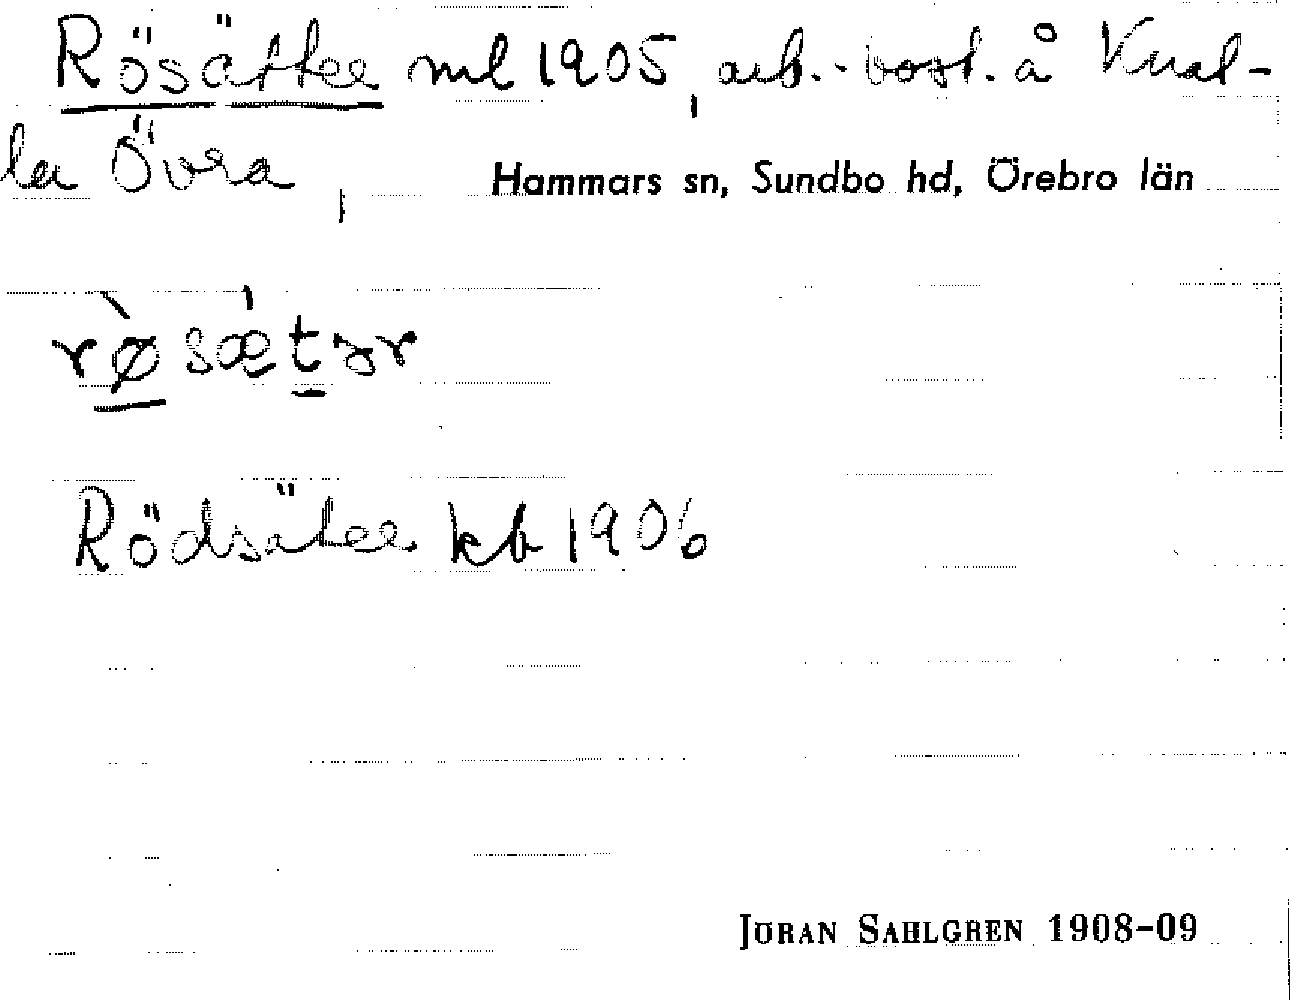 Rösätter ml 1905, arb.-bost. å Knal-
la Övra,
Hammars sn, Sundbo hd, Örebro län
rø̀sæ̀tər
Rödsäter kb 1906
JÖRAN SAHLGREN 1908-09